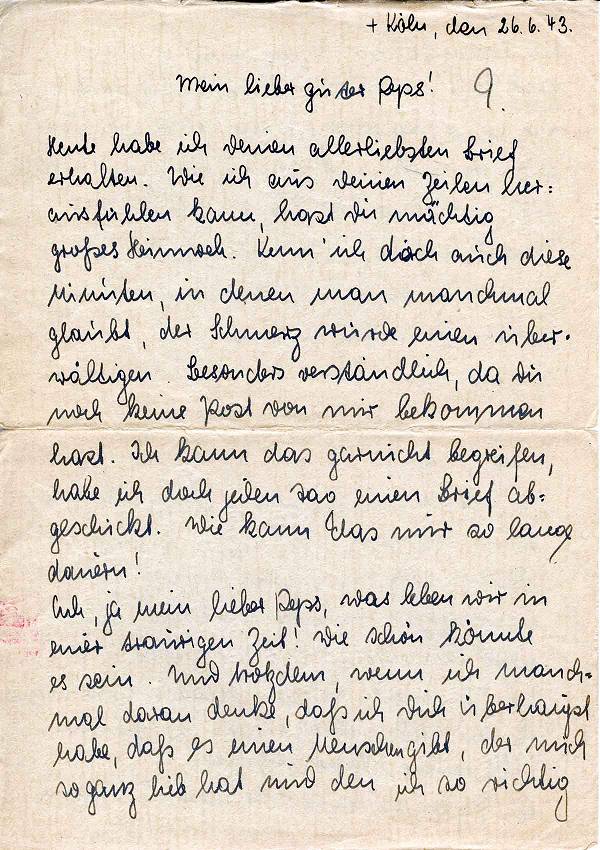 + Köln, den 26.6.43.
Mein lieber guter Peps! 9.
Heute habe ich deinen allerliebsten Brief
erhalten. Wie ich aus deinen Zeilen her=
ausfühlen kann, hast du mächtig
großes Heimweh. Kenn' ich doch auch diese
Minuten, in denen man manchmal
glaubt, der Schmerz würde einen über-
wältigen. Besonders verständlich, da Du
noch keine Post von mir bekommen
hast. Ich kann das garnicht begreifen,
habe ich doch jeden Tag einen Brief ab=
geschickt. Wie kann das nur so lange
dauern!
Ach, ja mein lieber Peps, was leben wir in
einer traurigen Zeit! Wie schön könnte
es sein. Und trotzdem, wenn ich manch=
mal daran denke, daß ich Dich überhaupt
habe, daß es einen Menschen gibt, der mich
so ganz lieb hat und den ich so richtig